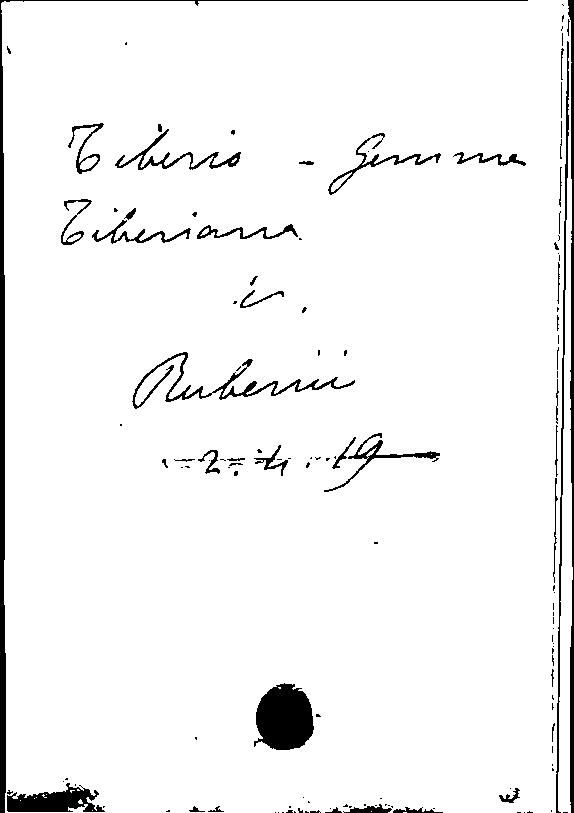 Tiberio - Gemma
Tiberiana
in
Rubenii
2.4.19